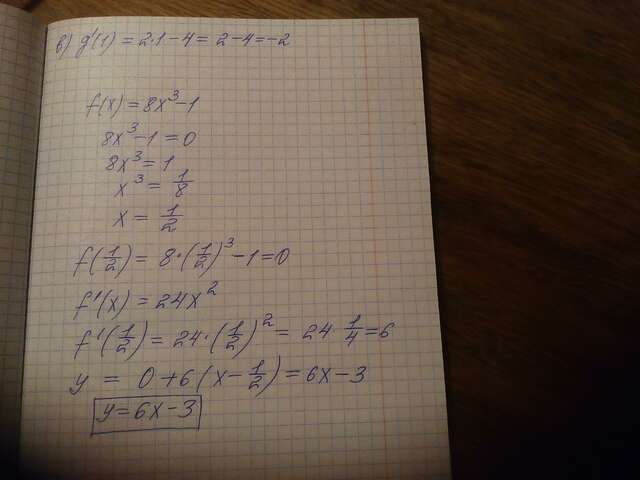 в) g'(1) = 2·1-4 = 2-4=-2
f(x) = 8x³-1
8x³-1=0
8x³=1
x³ = 1/8
x = 1/2
f(1/2) = 8·(1/2)³-1=0
f'(x) = 24x²
f'(1/2) = 24·(1/2)² = 24·1/4=6
y = 0+6(x-1/2) = 6x-3
y=6x-3